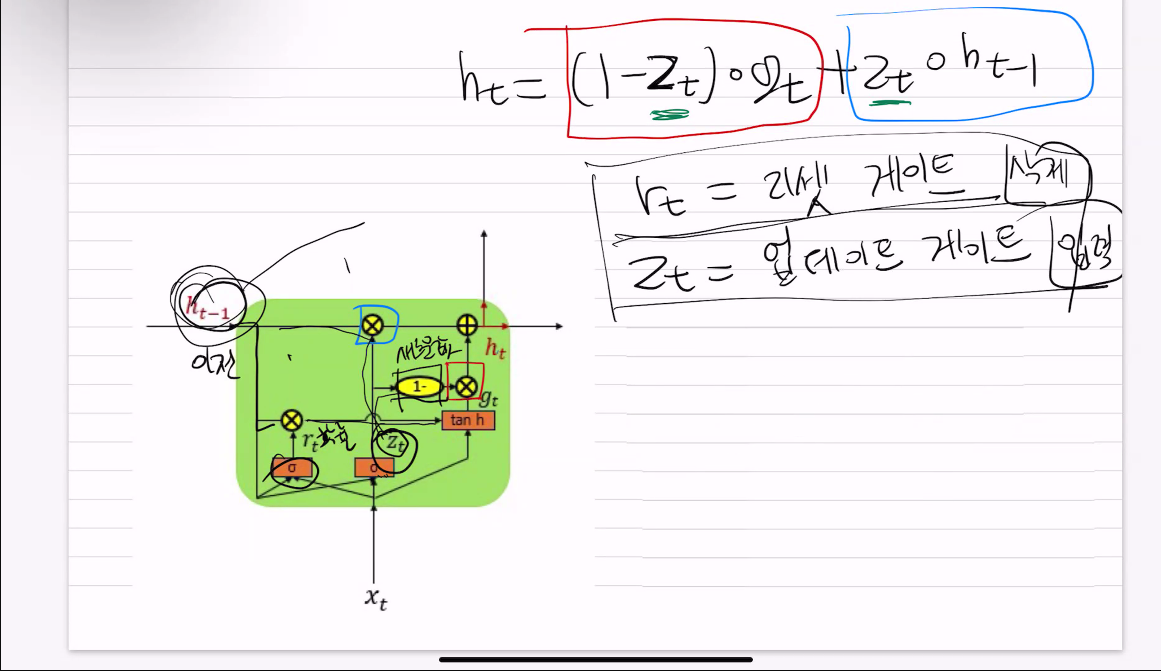 hₜ = (1-zₜ)∘gₜ + zₜ∘hₜ₋₁
rₜ = 리셋 게이트 삭제
zₜ = 업데이트 게이트 입력
hₜ₋₁
이전
hₜ
1-
gₜ
tan h
rₜ
zₜ
σ
σ
xₜ